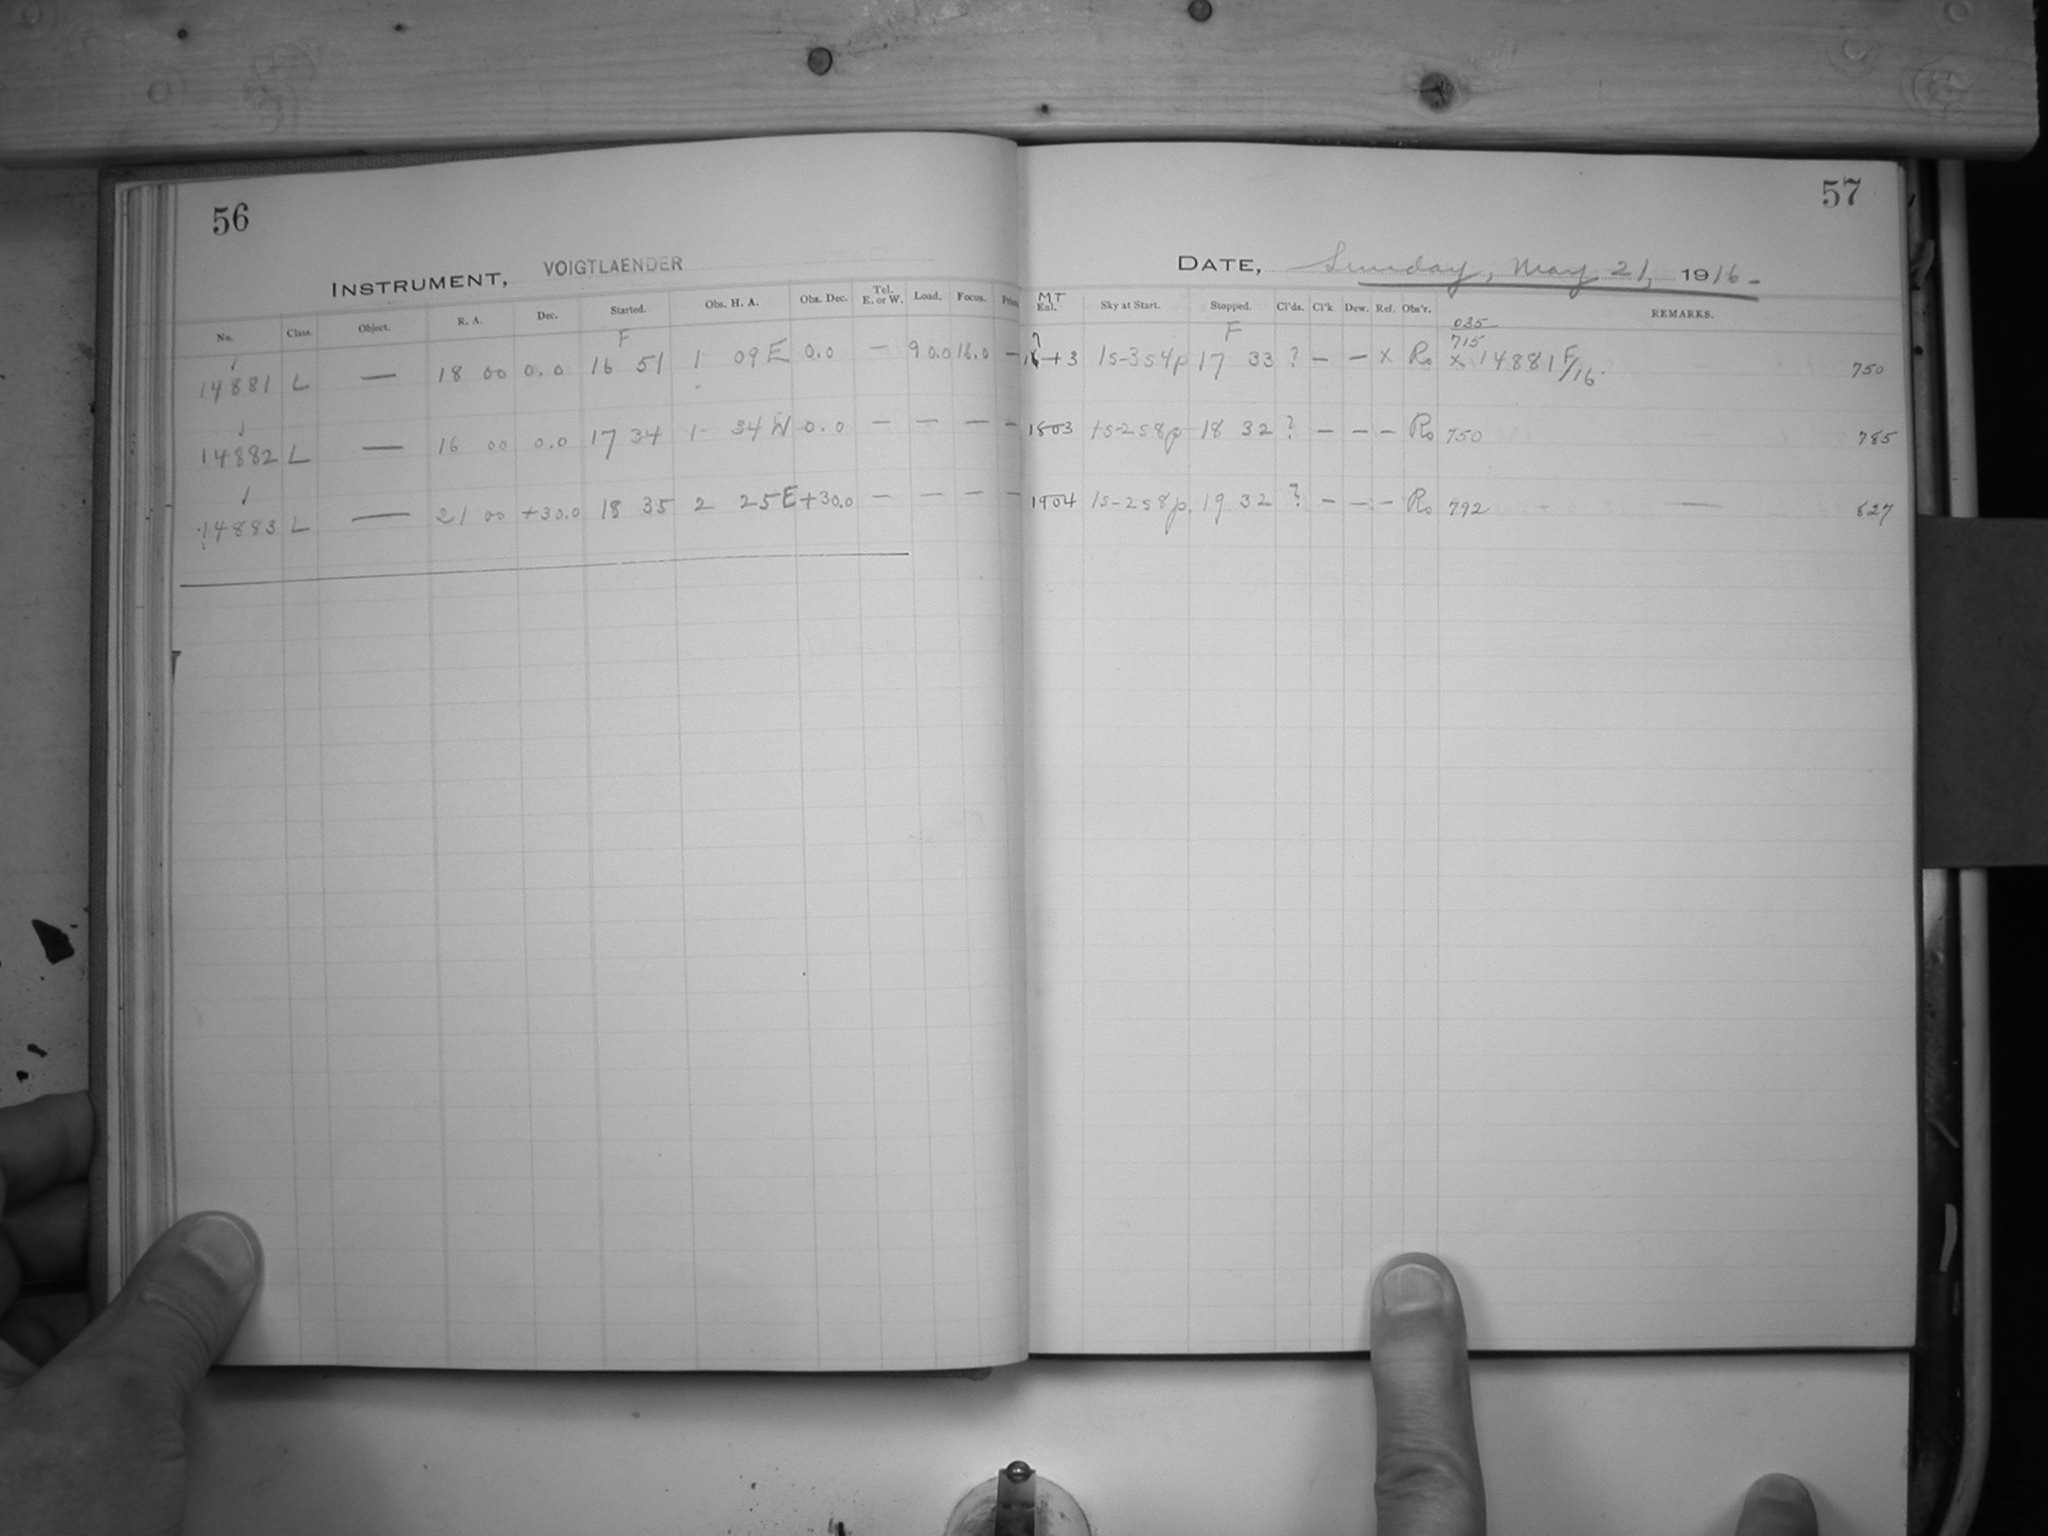 56
INSTRUMENT, VOIGTLAENDER
No. Class. Object. R. A. Dec. Started. Obs. H. A. Obs. Dec. Tel. E. or W. Load. Focus.
F
14881 L — 18 00 0.0 16 51 1 09 E 0.0 — 90.0 16.0 —
14882 L — 16 00 0.0 17 34 1 34 W 0.0 — — — —
14883 L — 21 00 +30.0 18 35 2 25 E +30.0 — — — —
57
DATE, Sunday, May 21, 1916 -
MT
Exl. Sky at Start. Stopped. Cl'ds. Cl'k Dew. Ref. Obs'r. REMARKS.
F 035
715
+3 1s-3s4p 17 33 ? — — x Ro x 14881 F/16. 750
1803 1s-2s8p 18 32 ? — — — Ro 750 785
1904 1s-2s8p. 19 32 ? — — — Ro 792 — 827